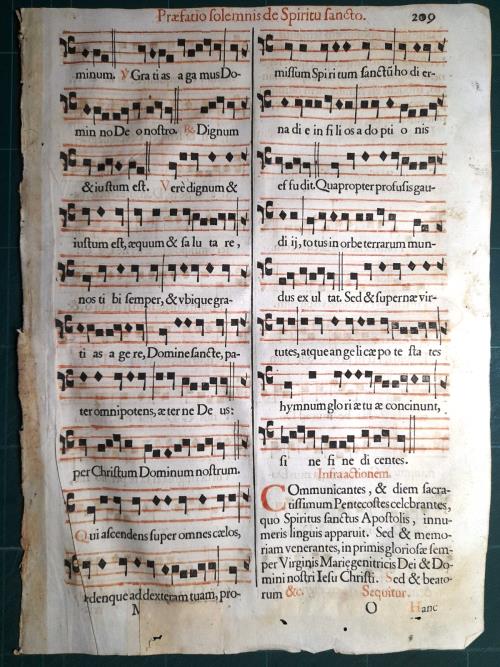 Præfatio solemnis de Spiritu sancto. 209
minum. ℣ Gra ti as a ga mus Do-
min no De o nostro. ℟ Dignum
& iustum est. Verè dignum &
iustum est, æquum & sa lu ta re,
nos ti bi semper, & vbique gra-
ti as a ge re, Domine sancte, pa-
ter omnipotens, æ ter ne De us:
per Christum Dominum nostrum.
Qui ascendens super omnes cælos,
denque ad dexteram tuam, pro-
M
missum Spi ri tum sanctũ ho di er-
na di e in fi li os a do pti o nis
ef fu dit. Quapropter profusis gau-
di ij, to tus in orbe terrarum mun-
dus ex ul tat. Sed & supernæ vir-
tutes, atque an ge li cæ po te sta tes
hymnum glo ri æ tu æ concinunt,
si ne fi ne di centes.
Infra actionem.
COmmunicantes, & diem sacra-
tissimum Pentecostes celebrantes,
quo Spiritus sanctus Apostolis, innu-
meris linguis apparuit. Sed & memo-
riam venerantes, in primis gloriosæ sem-
per Virginis Mariæ genitricis Dei & Do-
mini nostri Iesu Christi. Sed & beato-
rum &c. Sequitur.
O Hanc